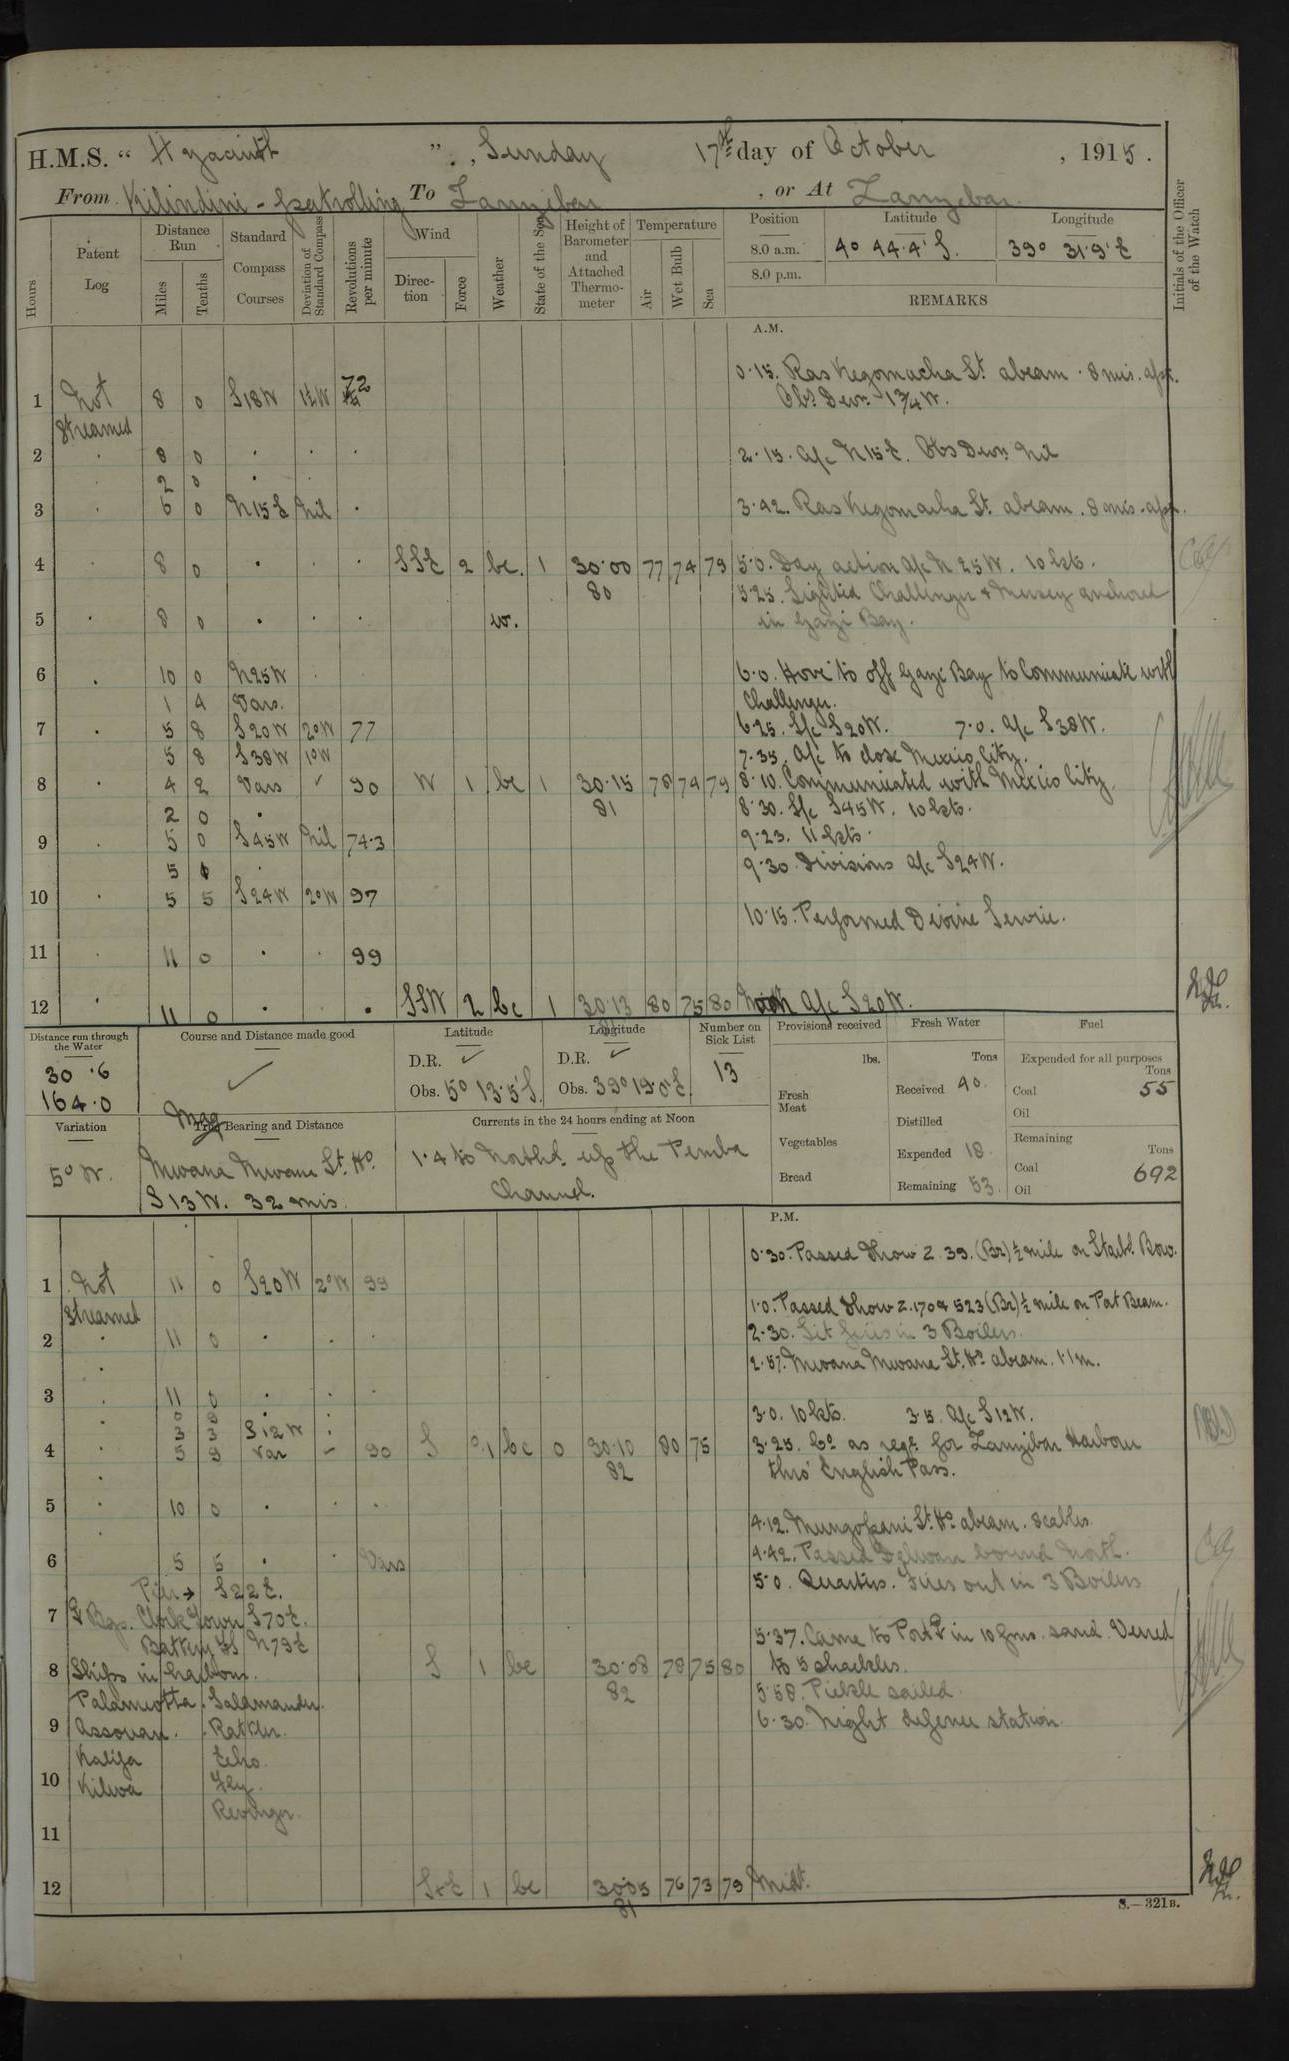 H.M.S. “ Hyacinth ”, Sunday 17th day of October , 1915.
From Kilindini - patrolling To Zanzibar , or At Zanzibar
Hours
Patent Log
Distance Run
Miles
Tenths
Standard Compass Courses
Deviation of Standard Compass
Revolutions per minute
Wind
Direction
Force
Weather
State of the Sea
Height of Barometer and Attached Thermometer
Temperature
Air
Wet Bulb
Sea
Position
Latitude
Longitude
8.0 a.m. 4° 44.4' S. 39° 31.9' E
8.0 p.m.
REMARKS
Initials of the Officer of the Watch
A.M.
0.15. Ras Kegomacha Lt. abeam . 8 mis. appx.
1 Not 8 0 S18W 1½W 72
Obs. Devn. 1¾W.
Streamed
2 . 8 0 . . . 2.15. A/c N15E. Obs Devn. Nil
. 2 0 .
3 . 6 0 N15E Nil . 3.42. Ras Kegomacha Lt. abeam . 8 mis. appx.
4 . 8 0 . . . SSE 2 bc. 1 30.00 77 74 79 5.0. Day action A/c N25W. 10 kts.
80 5.25. Sighted Challenger & Mersey anchored
5 . 8 0 . . . w. in Gazi Bay.
6 . 10 0 N25W 6.0. Hove to off Gazi Bay to Communicate with
1 4 Vars. Challenger.
7 . 5 8 S20W 2°W 77 6.25. S/c S20W. 7.0. A/c S38W.
5 8 S38W 1°W 7.35. A/c to close Mexico City.
8 4 2 Vars ✓ 90 W 1 bc 1 30.15 78 74 79 8.10. Communicated with Mexico City.
2 0 . 81 8.30. S/c S45W. 10 kts.
9 . 5 0 S45W Nil 74.3 9.23. 11 kts.
5 . 9.30 Divisions A/c S24W.
10 . 5 5 S24W 2°W 97
10.15. Performed Divine Service.
11 . 11 0 . . 99
12 . 11 0 . . SSW 2 bc 1 30.13 80 75 80 Noon A/c S20W.
81
Distance run through the Water
30.6
164.0
Course and Distance made good
✓
Latitude
D.R. ✓
Obs. 5° 13.5' S.
Longitude
D.R. ✓
Obs. 39° 19.0' E
Number on Sick List
13
Provisions received
lbs.
Fresh Meat
Vegetables
Bread
Fresh Water
Tons
Received 40.
Distilled
Expended 18.
Remaining 53.
Fuel
Expended for all purposes
Tons
Coal 55
Oil
Remaining
Tons
Coal 692
Oil
Variation
5° W.
Mag
True Bearing and Distance
Mwana Mwana Lt. Ho.
S 13 W. 32 mis.
Currents in the 24 hours ending at Noon
1.4 to North'd. up the Pemba
Channel.
P.M.
0.30. Passed Dhow Z.39. (Br) ½ mile on Starbd. Bow.
1 Not 11 0 S20W 2°W 99
Streamed 1.0. Passed Dhow Z.170 & 523 (Br) ½ mile on Port Beam.
2 . 11 0 . . . 2.30. Lit fires in 3 Boilers.
2.57. Mwana Mwana Lt. Ho. abeam. 1.1 m.
3 . 11 0 . . .
0 9 . 3.0. 10 kts. 3.5. A/c S12W.
3 3 S12W
4 . 5 9 Var ✓ 90 S 0.1 bc 0 30.10 80 75 3.25. Co. as reqd. for Zanzibar Harbour
82 thro' English Pass.
5 . 10 0 . . .
4.12. Mungopani Lt. Ho. abeam. 8 cables.
6 5 5 . . Vars 4.42. Passed bound North.
Pier → S22E. 5.0. Quarters. Fires out in 3 Boilers
7 Bgs. Clock Tower S70E.
Battery N79E 5.37. Came to Port in 10 fms. sand. Veered
8 Ships in harbour. S 1 bc 30.08 78 75 80 to 5 shackles.
Palamcotta. Salamander. 82 5.58. Pickle sailed.
9 Assouan. Rattler. 6.30. Night defence station.
Kalifa Echo.
10 Kilwa Fly.
Revenger.
11
12 SxE 1 bc 30.05 76 73 79 Midt.
81
S.—321B.